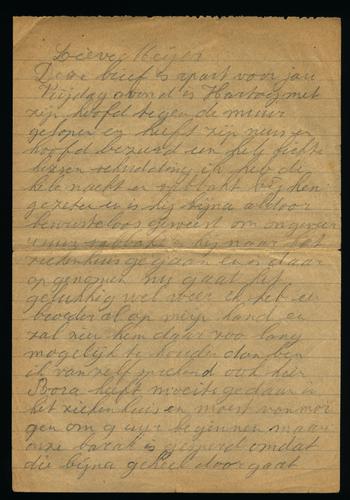 Lieve Meijer
Deze brief is apart voor jou
Vrijdag avond is Hartog met
zijn hoofd tegen de muur
gelopen en heeft zijn neus en
hoofd bezeerd en hele lichte
hersen schudding ik heb de
hele nacht er bij hem
gezeten en is hij bijna aldoor
bewusteloos geweest om ongeveer
is hij naar het
ziekenhuis gegaan en is daar
opgenomen nu gaat het
gelukkig wel weer ik heb er
al op mijn hand en
zal zien hem daar zoo lang
mogelijk te houden dan ben
ik van zelf sprekend ook hier
Bora heeft moeite gedaan in
het ziekenhuis en moest van mor
gen om 9 uur beginnen maar
onze barak is gesperd omdat
die bijna geheel door gaat